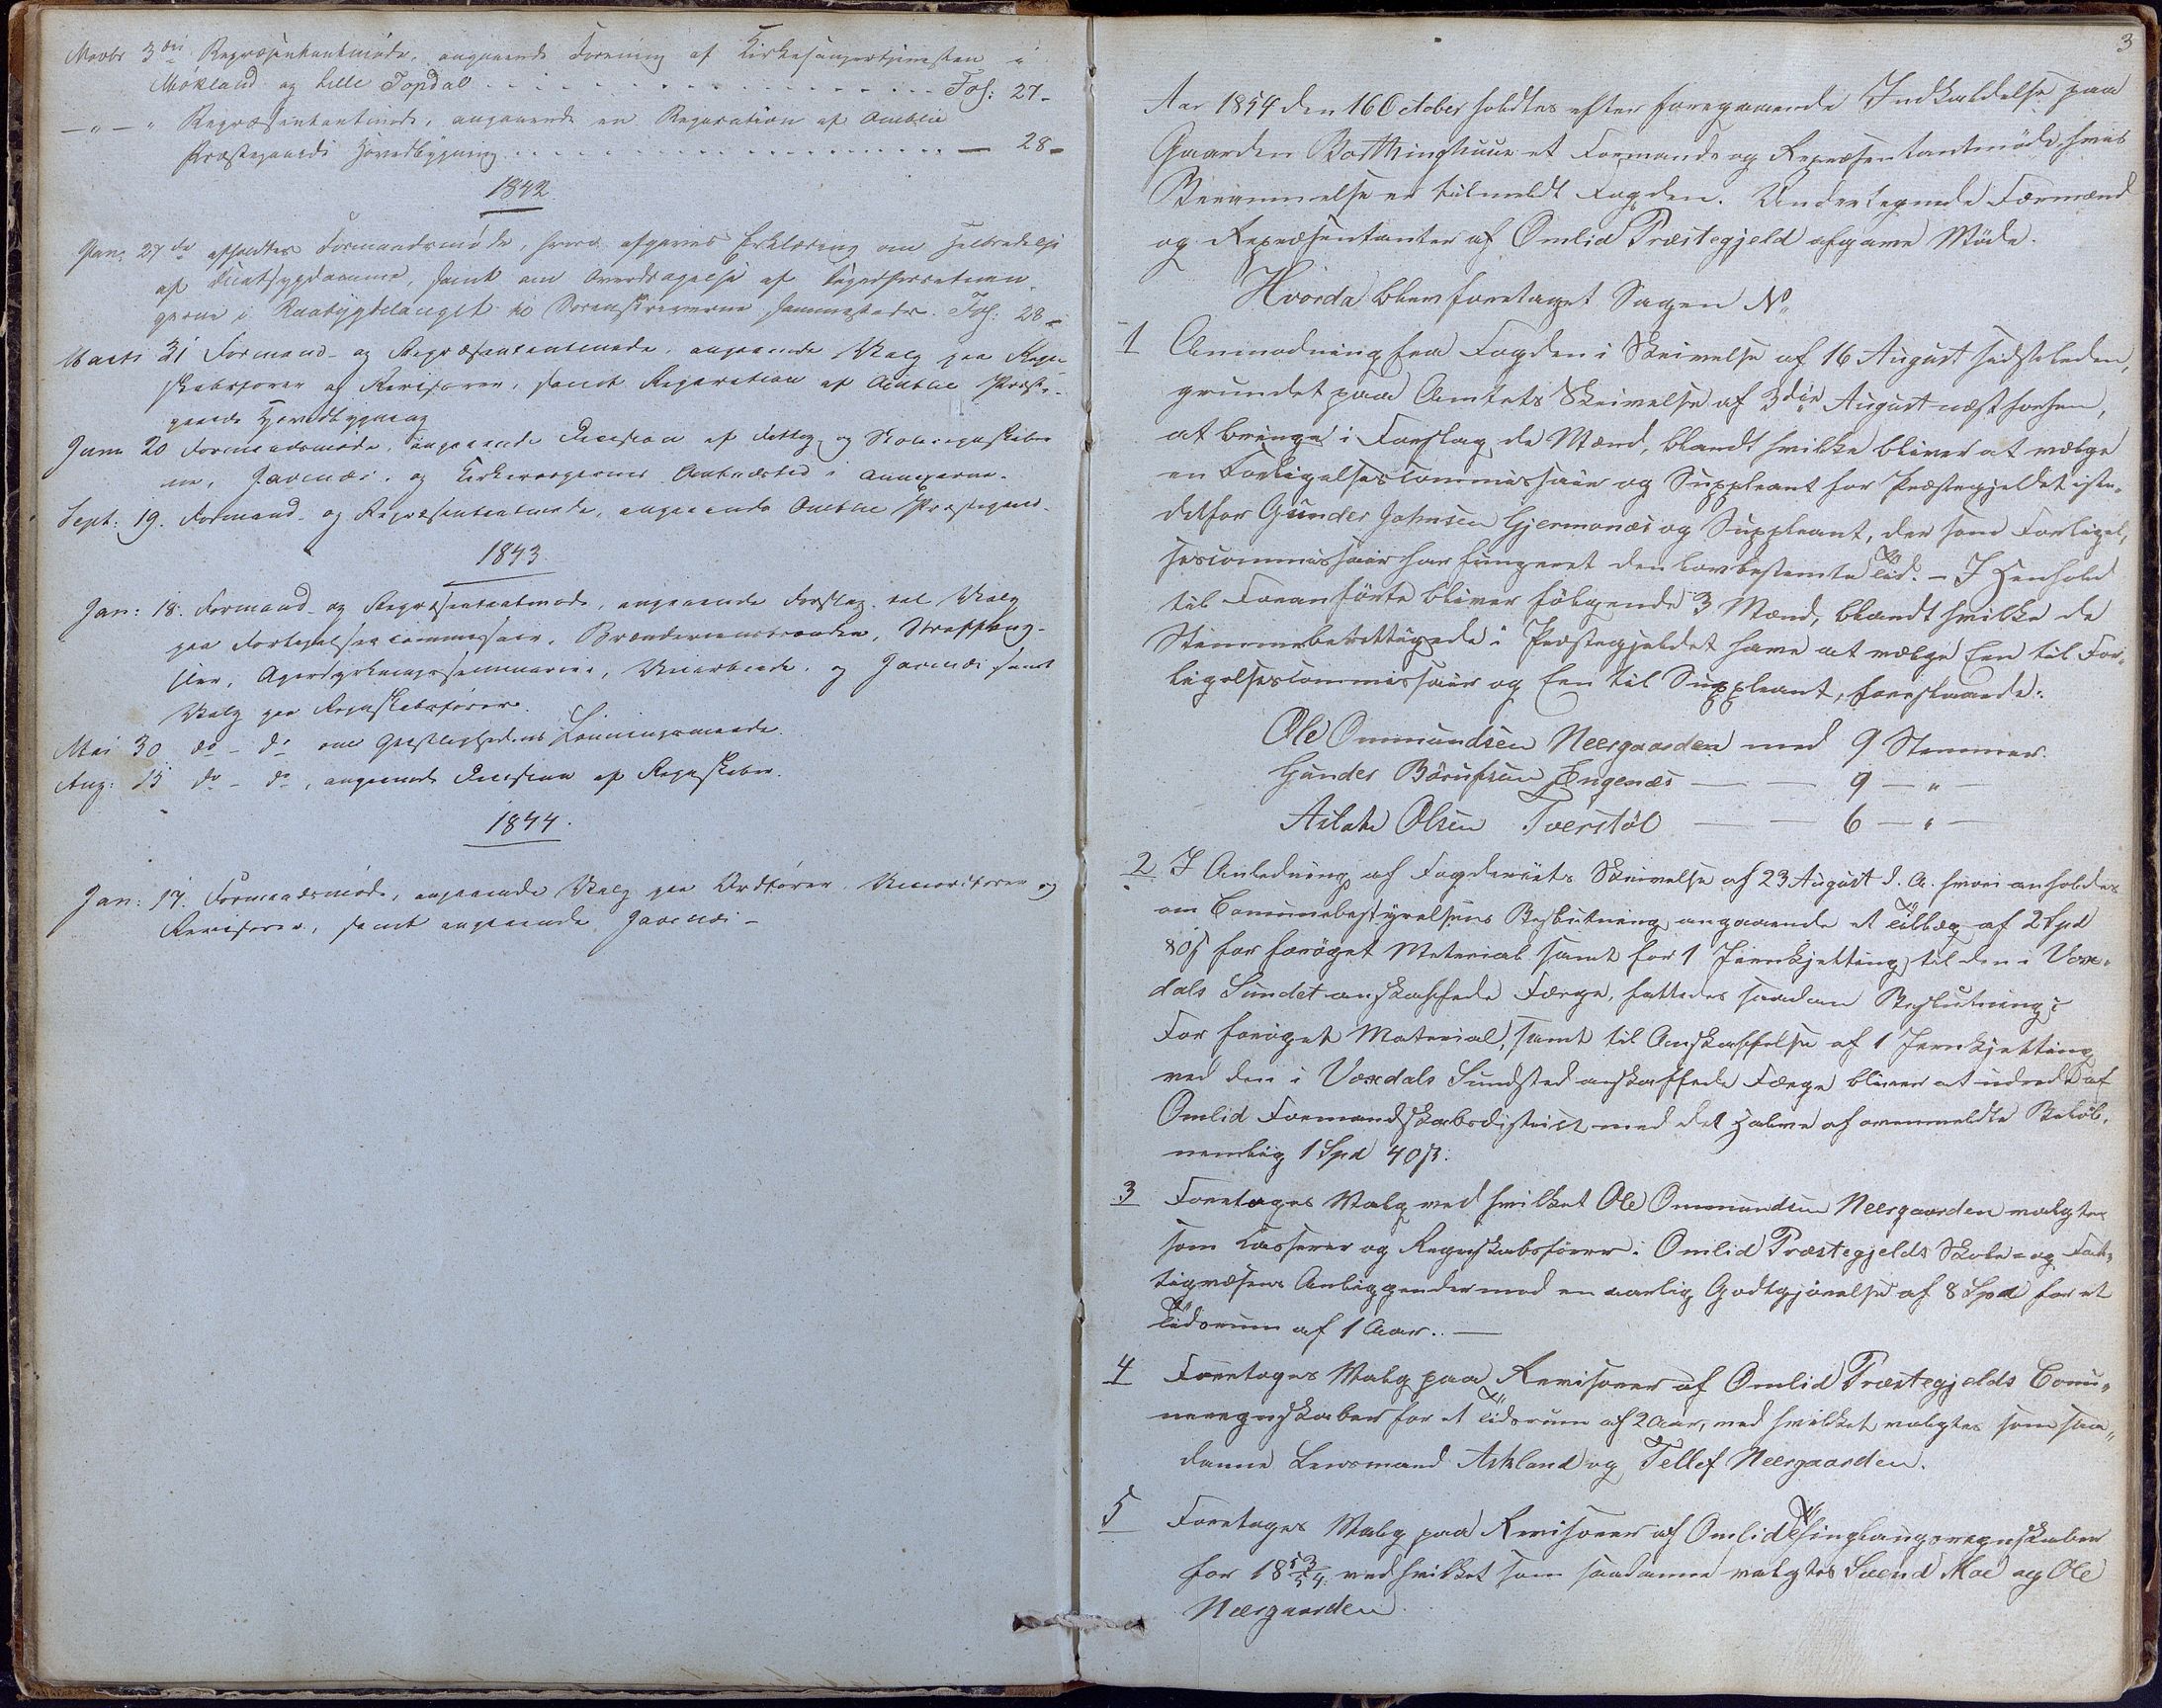 Novbr 3die Repræsentantmøde, angaaende Forening af Kirkesangertjenesten i
Møkland og Lille Topdal . . . . . . . . Fol: 27-
—"—" Repræsentantmøde, angaaende en Reparation af Omblie
Præstegaards Hovedbygning . . . . . . . . — 28-
1842
Jan: 27de afholdtes Formandsmøde, hvori afgaves Erklæring om Helbredelse
af Sindssygdomme, samt om Overdragelse af
gerne i Raabygdelauget til Sorenskriverne sammesteds. Fol: 28-
Marts 31 Formand- og Repræsentantmøde, angaaende Valg paa Regn-
skabsfører og Revisorer, samt Reparation af Omblie Præste-
gaards Hovedbygning
Juni 20 Formandsmøde, angaaende Decision af Fattig- og Skoleregnskaber
ne, Javnæs, og Kirkeværgernes Ombudsted i Annexerne.
Sept: 19. Formand- og Repræsentantmøde, angaaende Omblie Præstegaard.
1843.
Jan: 18. Formand- og Repræsentantmøde, angaaende Forslag til Valg
paa Forligelsescommissair, Brænderiensbrænden,
ller, Agerdyrkningsseminarier, Veiarbeide, og Javnæs samt
Valg paa Regnskabsfører.
Mai 30 do - do om Geistlighedens Lønningsmaade.
Aug: 15 do - do, angaaende Decision af Regnskaber.
1844.
Jan: 17. Formandsmøde, angaaende Valg paa Ordfører, Viceordfører og
Revisorer, samt angaaende Javnæs-
3
Aar 1854 den 16 October holdtes efter foregaaende Indkaldelse paa
Gaarden Borthinghuus et Formands og Repræsentantmöde, hvis
Berammelse er tilmeldt Fogden. Undertegnede Formænd
og Repræsentanter af Omlid Præstegjeld afgave Möde.
Hvorda blev foretaget Sagen No
1 Anmodning fra Fogden i Skrivelse af 16 August sidstleden,
grundet paa Amtets Skrivelse af 3die August næstforhen,
at bringe i Forslag de Mænd, blandt hvilke bliver at vælge
en Forligelsescommissair og Suppleant for Præstegjeldet iste-
detfor Gunder Johnsen Gjermonæs og Suppleant, der som Forligel,
sescommissair har fungeret den lovbestemte Tid. - I Henhold
til Foranførte bliver følgende 3 Mænd, blandt hvilke de
Stemmeberettigede i Præstegjeldet have at vælge Een til For-
ligelsescommissair og Een til Suppleant, foreslaaede:
Ole Ommundsen Neergaarden med 9 Stemmer.
Gunder Börufsen Engenæs — — 9 — " —
Aslak Olsen Tverstøl — — 6 — " —
2 I Anledning af Fogderiets Skrivelse af 23 August d. A. hvori anholdes
om Communebestyrelsens Beslutning angaaende et Tillæg af 2 Spd
80ß for forøget Material samt for 1 Jernkjetting til den i Vox-
dals Sundet anskaffede Færge, fattedes saadan Beslutning:
For forøget Material, samt til Anskaffelse af 1 Jernkjetting
ved den i Voxdals Sundsted anskaffede Færge bliver at udrede af
Omlid Formandskabsdistrict med det Halve af ovenmeldte Beløb,
nemlig 1 Spd 40ß.
3 Foretoges Valg ved hvilket Ole Ommundsen Neergaarden valgtes
som Casserer og Regnskabsfører i Omlid Præstegjelds Skole- og Fat-
tigvæsens Anliggender med en aarlig Godtgjørelse af 8 Spd for et
Tidsrum af 1 Aar. —
4 Foretoges Valg paa Revisorer af Omlid Præstegjelds Com-
neregnskaber for et Tidsrum af 2 Aar, ved hvilket valgtes som saa-
danne Lensmand Askland og Tellef Neergaarden.
5 Foretoges Valg paa Revisorer af Omlid Thinglaugsregnskaber
for 1853/54 ved hvilket som saadanne valgtes Svend Moe og Ole
Neergaarden.